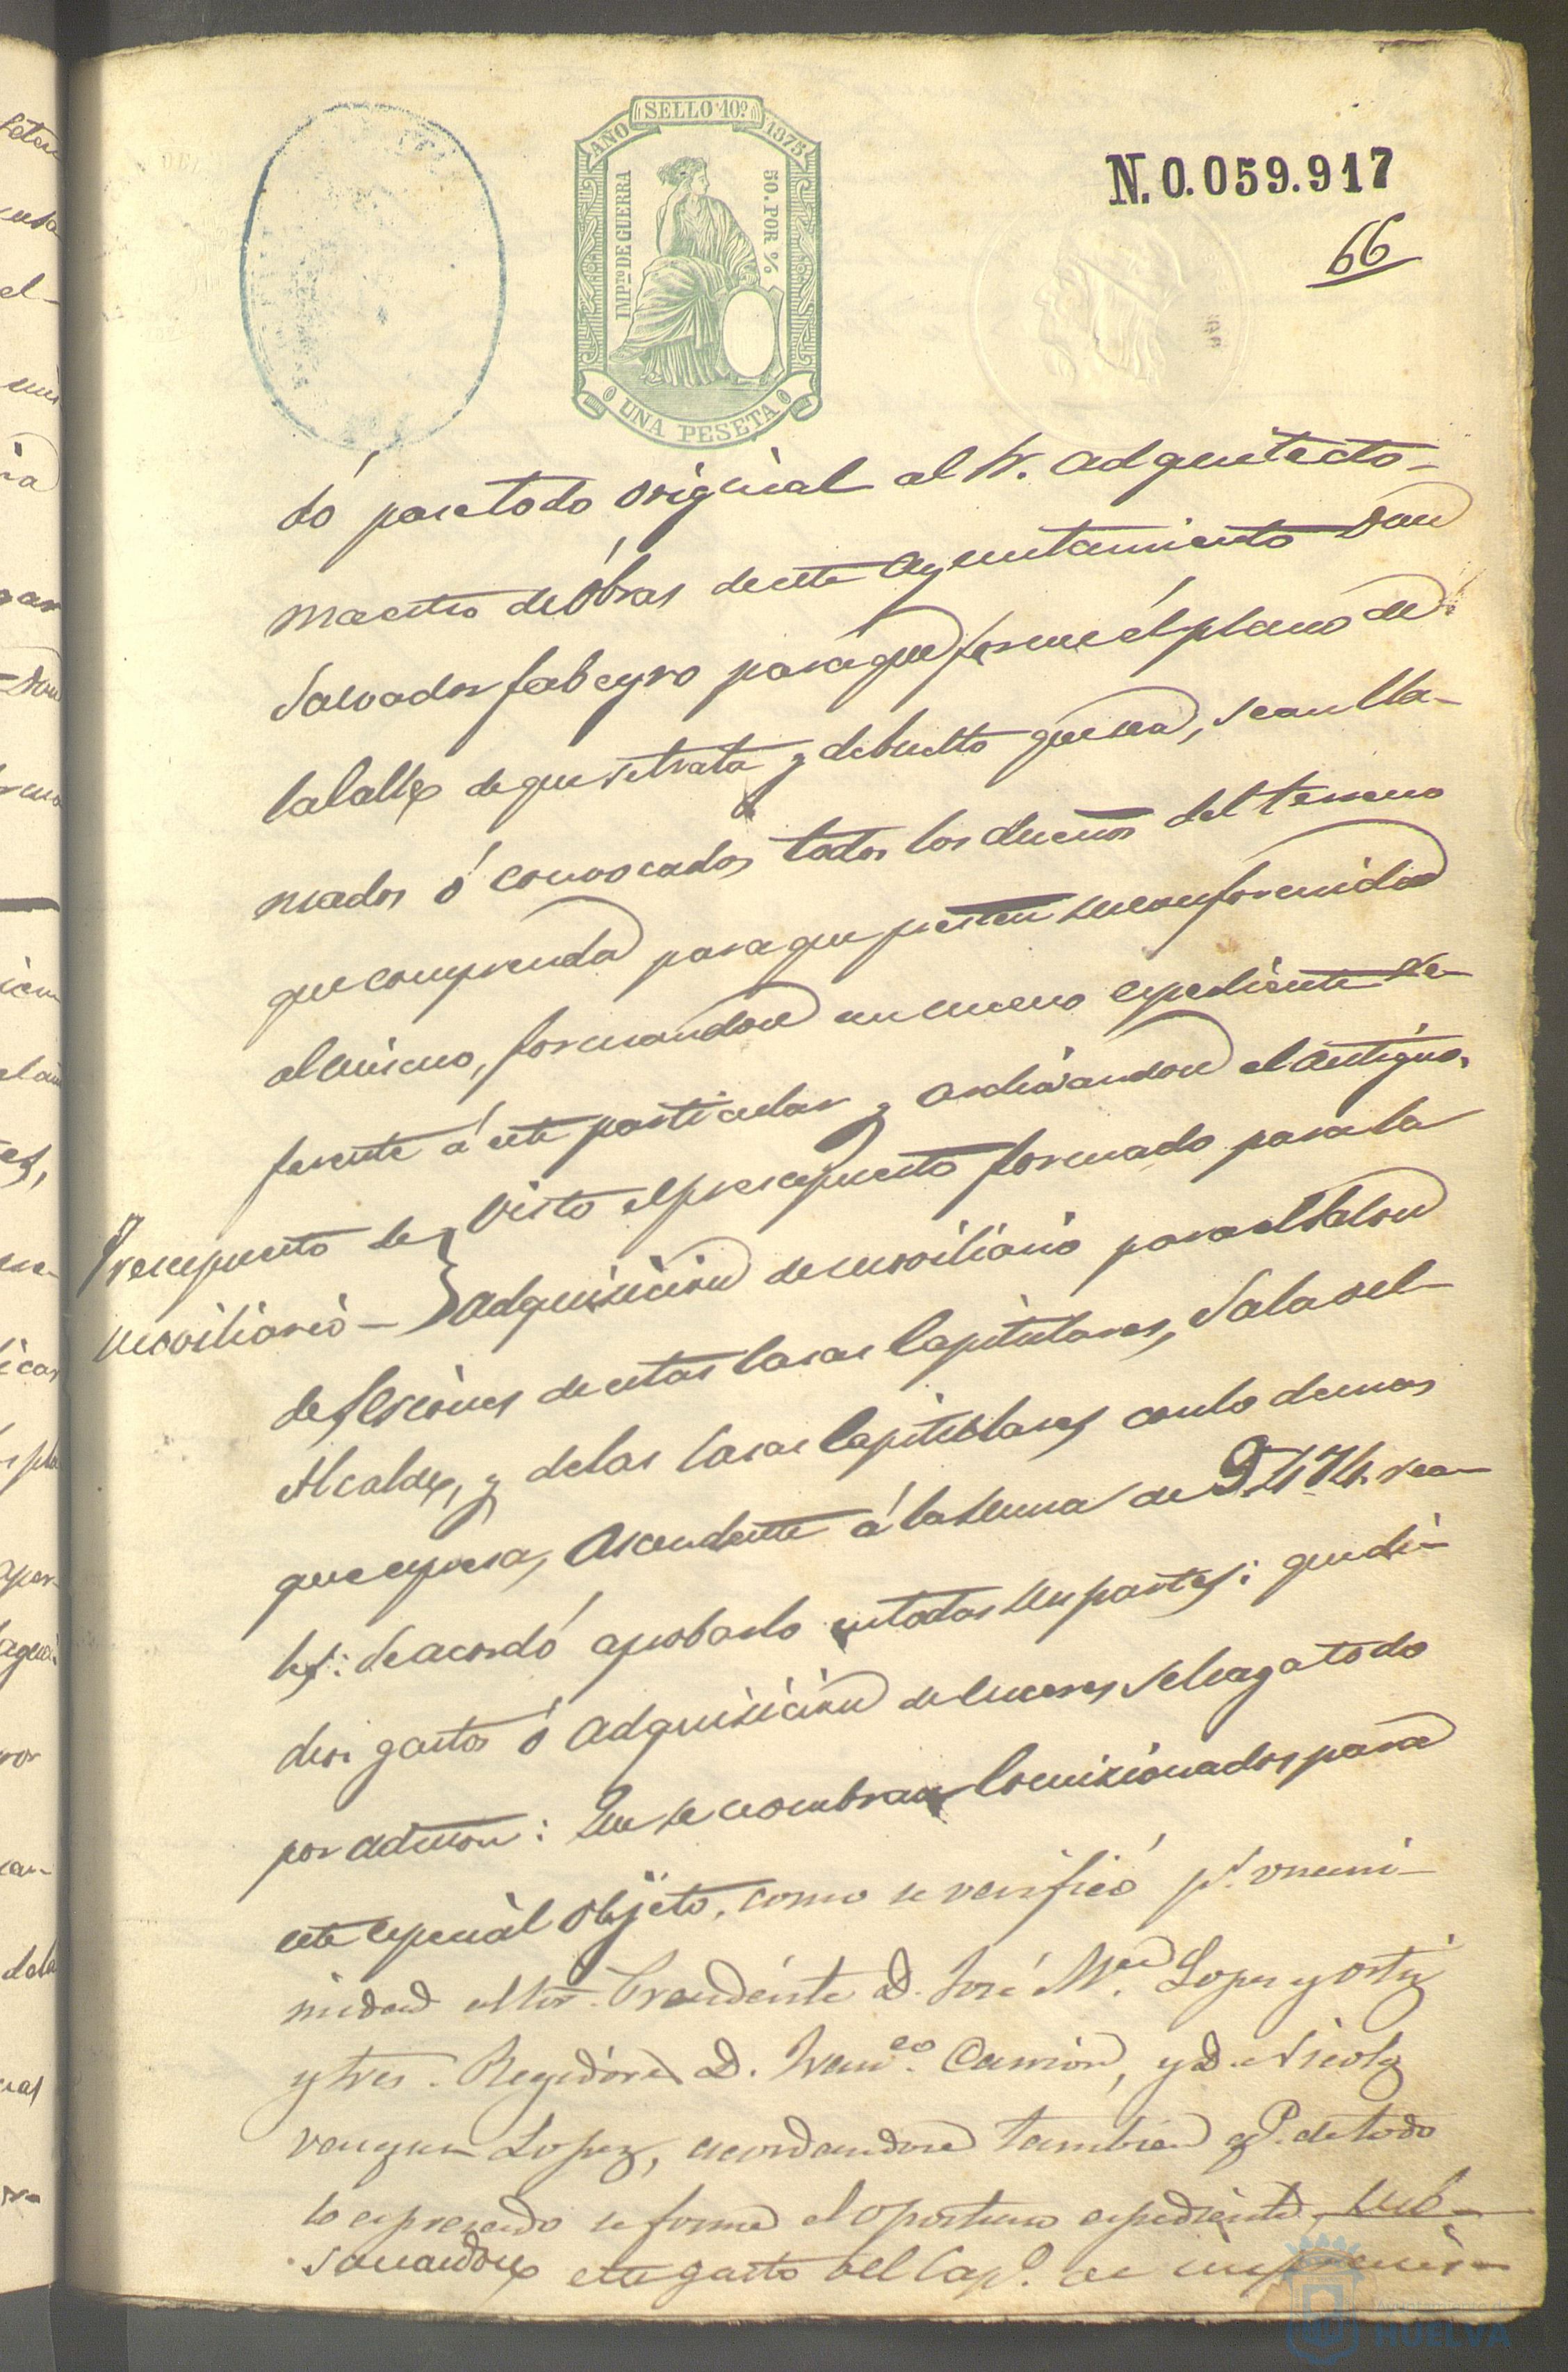 SELLO 10º
AÑO 1875
IMPTO DE GUERRA
50. POR %
UNA PESETA
N. 0.059.917
66
dó pase todo original al Sr. Adquitecto-
Maestro de Obras de este Ayuntamiento Don
Salvador Fabeyro para que forme el plano de
la Calle de que se trata y debuelto que sea, sean lla-
mados ó convocados todos los dueños del terreno
que comprenda para que presten su conformidad
al mismo, formandose un nuevo espediente re-
ferente á este particular y archivandose el antiguo.
Presupuesto de
moviliario -
Visto el presupuesto formado para la
adquisicion de moviliario para el Salon
de Sesiones de estas Casas Capitulares, Sala del
Alcalde, y de las Casas Capitulares con lo demas
que espresa, ascendente á la suma de 9.474. rea-
les: Se acordó aprobarlo en todas sus partes: que di-
chos gastos ó adquisicion de enseres se haga todo
por admon: Que se nombran Comisionados para
este especial objeto, como se verificó pr. unani-
midad al Sor. Presidente D. José Ma. Lopez y Ortiz
y Sres. Regidores D. Franco. Carrion, y D. Nicolas
Vazquez Lopez, acordandose tambien q. de todo
lo espresado se forme el oportuno espediente, sub-
sanandose este gasto del Capo. de imprevis-
Ayuntamiento de
HUELVA